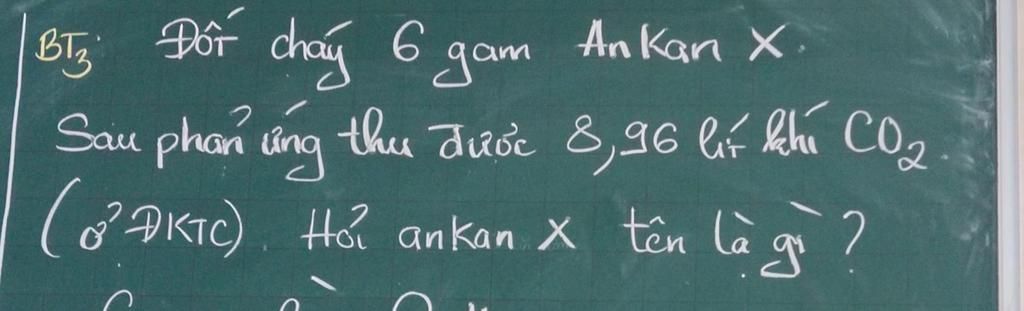 BT3: Đốt cháy 6 gam Ankan X.
Sau phản ứng thu được 8,96 lít khí CO2.
(ở ĐKTC). Hỏi ankan X tên là gì?